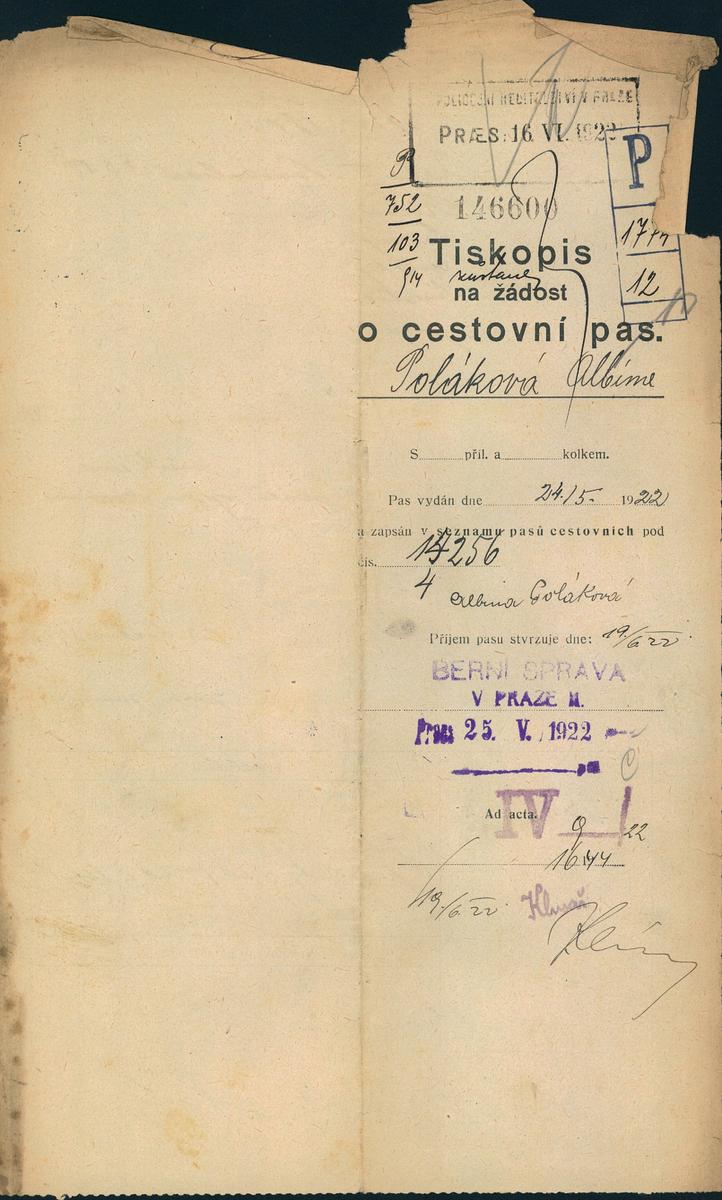 POLICEJNÍ ŘEDITELSTVÍ V PRAZE
PRÆS: 16. VI. 1922
P
P
752
146600
103
Tiskopis
914
12
na žádost
o cestovní pas.
Poláková Albine
S........příl. a............kolkem.
Pas vydán dne 24./5. 1922
a zapsán v seznamu pasů cestovních pod
čís. 14256
4
Albina Poláková
Příjem pasu stvrzuje dne: 19/6. 22.
BERNÍ SPRÁVA
V PRAZE II.
Praes 25. V. 1922
C
IV
Ad acta.
9
22
1644
19./6. 22.